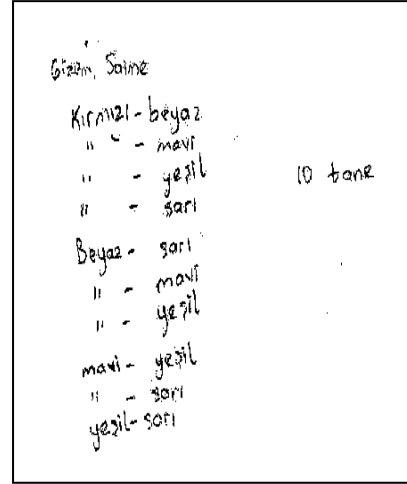 Gizem, Saime
Kırmızı - beyaz
" " - mavi
" - yeşil
" - sarı
10 tane
Beyaz - sarı
" - mavi
" - yeşil
mavi - yeşil
" - sarı
yeşil - sarı